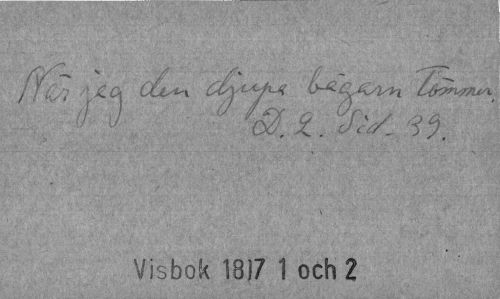 När jag den djupa bägarn tömmer.
D. 2. Sid. 39.
Visbok 1817 1 och 2